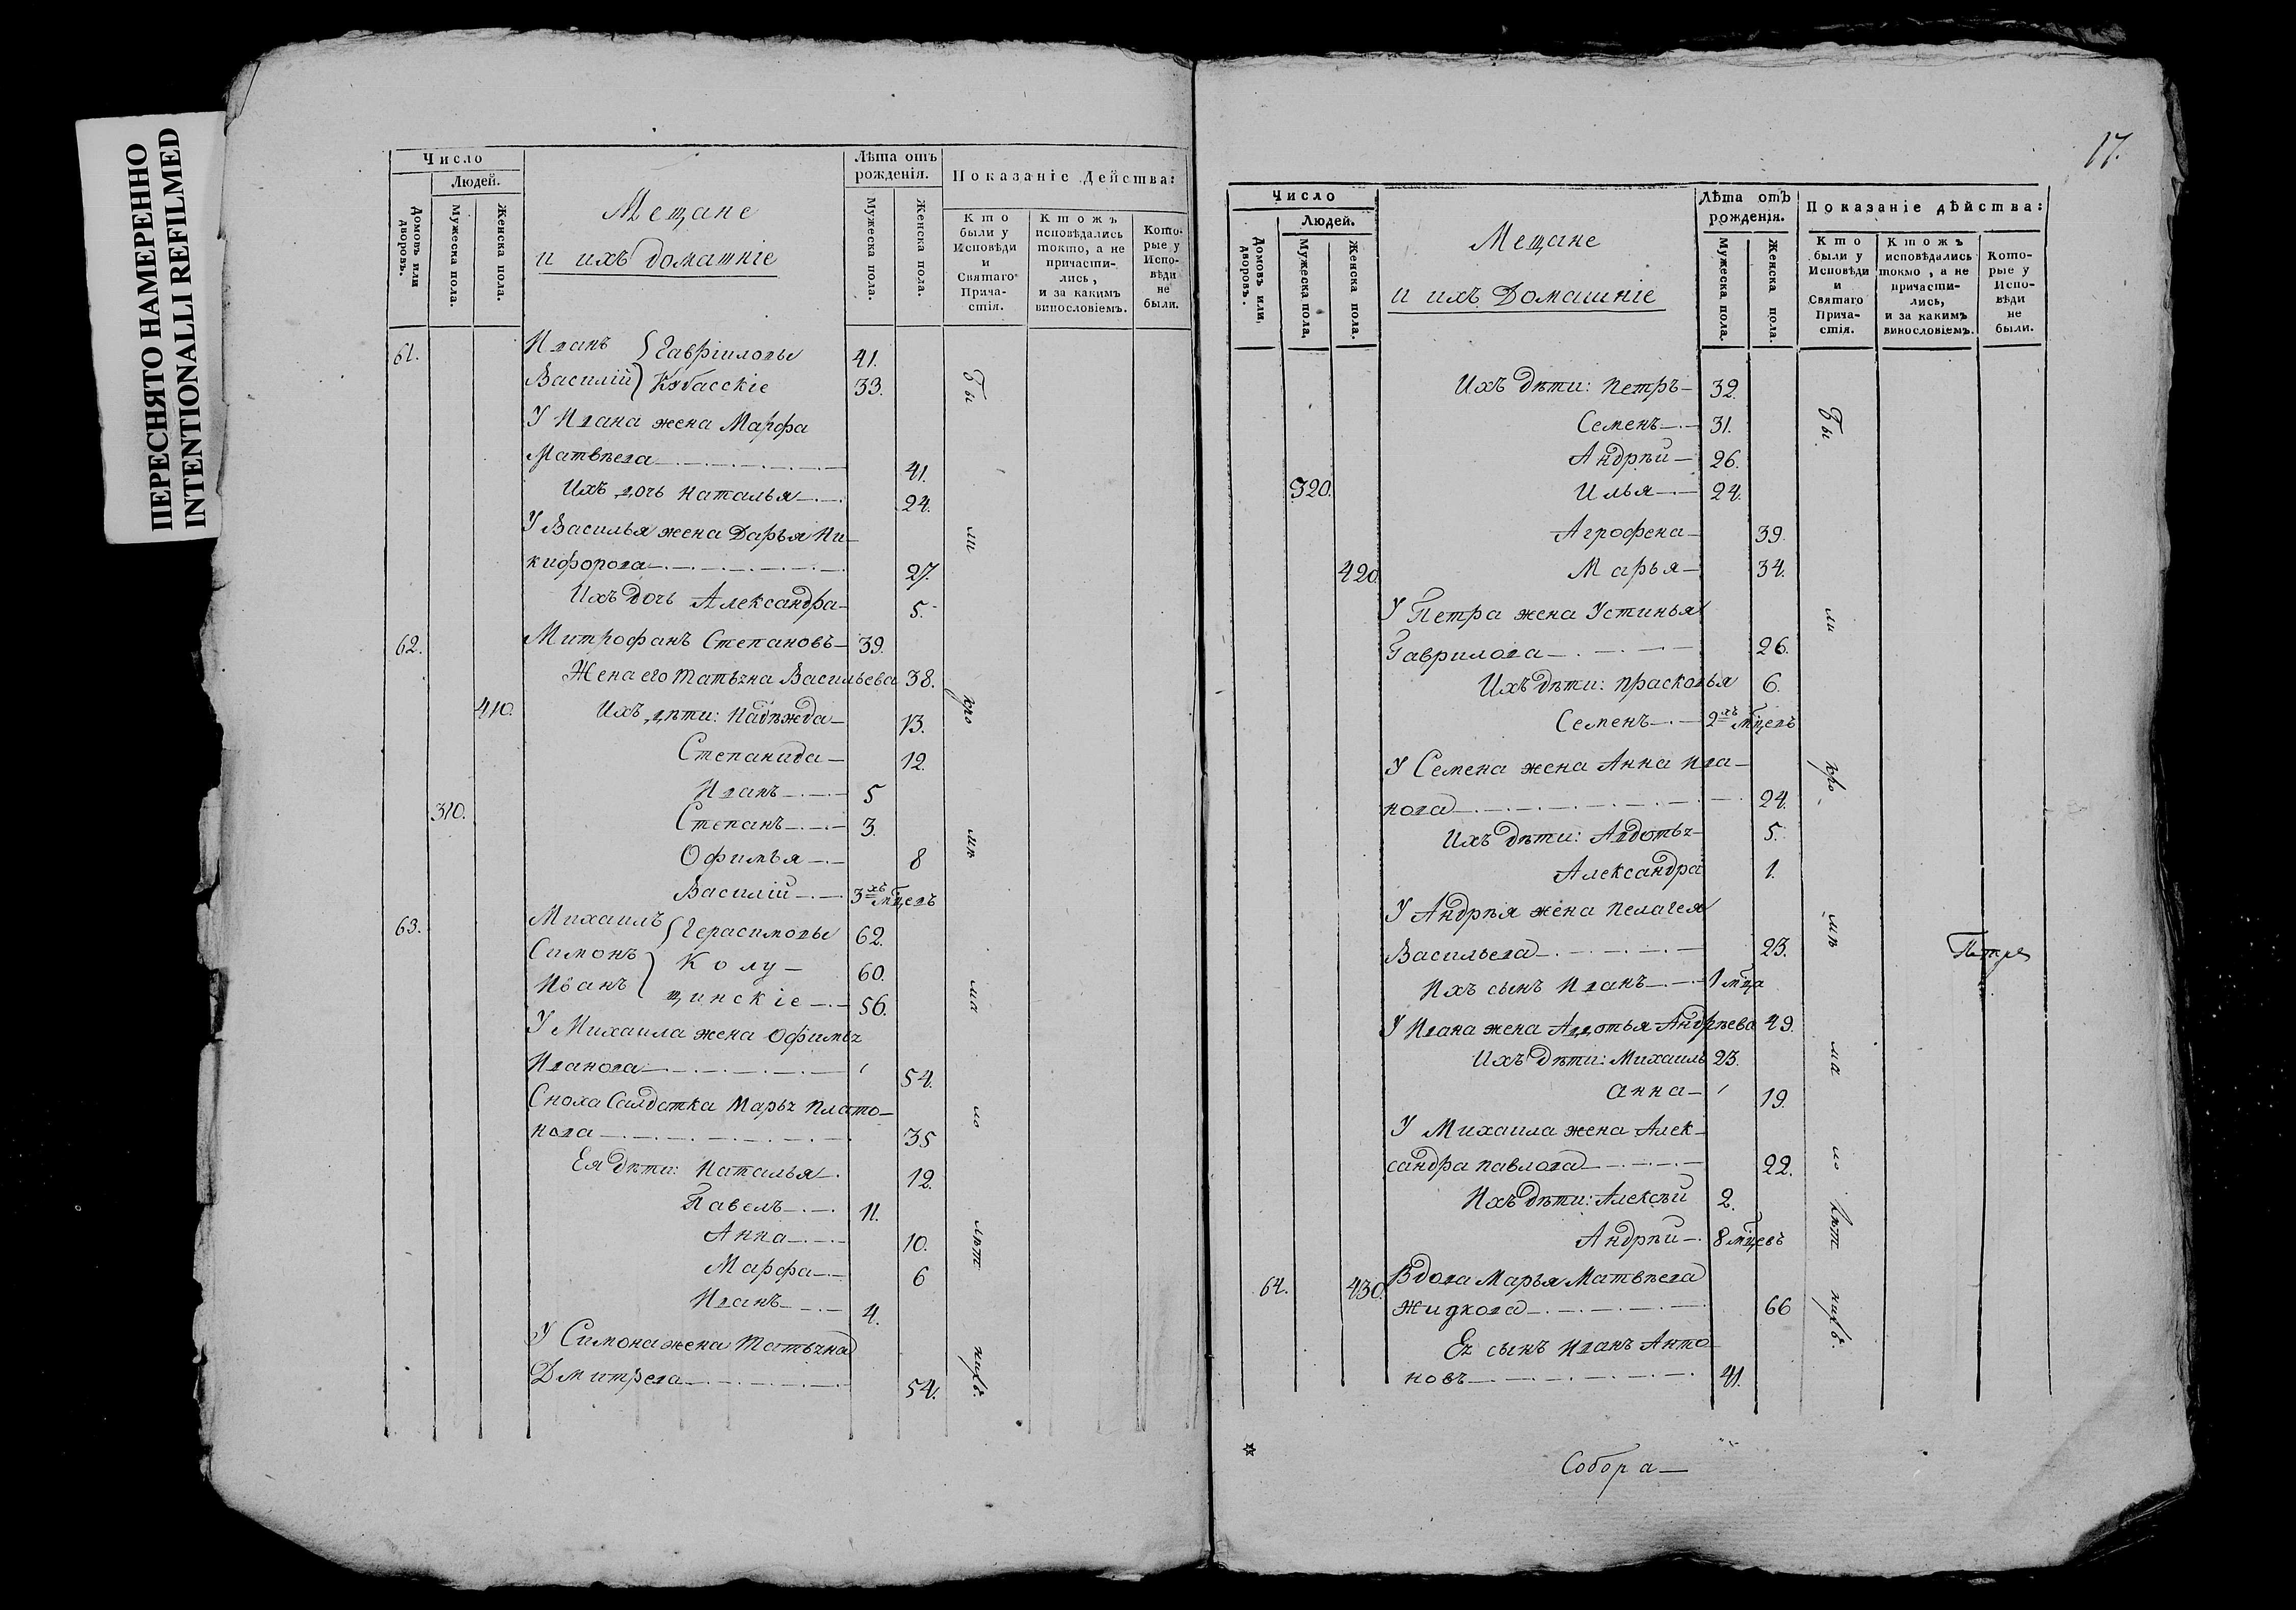 ПЕРЕСНЯТО НАМЕРЕННО
INTENTIONALLI REFILMED
Число
Людей.
Домовъ или дворовъ.
Мужеска пола.
Женска пола.
Мещане
и ихъ домашніе
Лѣта отъ рожденія.
Мужеска пола.
Женска пола.
Показаніе Действа:
Кто были у Исповѣди и Святаго Прича- стія.
Ктожъ исповѣдались токмо, а не причасти- лись, и за какимъ винословіемъ.
Кото- рые у Испо- вѣди не были.
61. Иванъ Гавріиловы 41.
Василій 33.
У Ивана жена Марфа
Матвѣева 41.
Ихъ дочь Наталья 24.
У Василья жена Дарья Ни-
кифорова 27.
Ихъ дочь Александра 5.
62. Митрофанъ Степановъ 39.
Жена его Татьяна Васильева 38.
410. Ихъ дѣти: Надѣжда 13.
Степанида 12.
Иванъ 5
310. Степанъ 3.
Офимья 8
Василій 3хъ мцевъ
63. Михаилъ Герасимовы 62.
Симонъ Колу- 60.
Иванъ щинскіе 56.
У Михаила жена Офимья
Иванова 54.
Сноха Салдатка Марья Плато-
нова 35
Ея дѣти: Наталья 12.
Павелъ 11.
Анна 10.
Марфа 6
Иванъ 4.
У Симона жена Татьяна
Дмитрева 54.
Бы
ли
кро
мѣ
ма
ло
лѣт
нихъ.
17.
Число
Людей.
Домовъ или, дворовъ.
Мужеска пола.
Женска пола.
Мещане
и ихъ Домашніе
Лѣта отЪ рожденія.
Мужеска пола.
Женска пола.
Показаніе дѣйства:
Кто были у Исповѣди и Святаго Прича- стія.
Ктожъ исповѣдались токмо, а не причасти- лись, и за какимъ винословіемъ.
Кото- рые у Испо- вѣди не были.
Ихъ дѣти: Петръ 32.
Семенъ 31.
Андрѣй 26.
320. Илья 24.
Агрофена 39.
420. Марья 34.
У Петра жена Устинья
Гаврилова 26.
Ихъ дѣти: Прасковья 6.
Семенъ 2хъ мцевъ
У Семена жена Анна Ива-
нова 24.
Ихъ дѣти: Авдотья 5.
Александра 1.
У Андрѣя жена Пелагея
Васильева 23.
Ихъ сынъ Иванъ 1 мца
У Ивана жена Авдотья Андрѣева 49.
Ихъ дѣти: Михаилъ 23.
Анна 19.
У Михаила жена Алек-
сандра Павлова 22.
Ихъ дѣти: Алексѣй 2.
Андрѣй 8 мцевъ
64. 430. Вдова Марья Матвѣева
Жидкова 66
Ея сынъ Иванъ Анто
новъ 41.
Бы
ли
кро
мѣ
ма
ло
лѣт
нихъ.
Собора